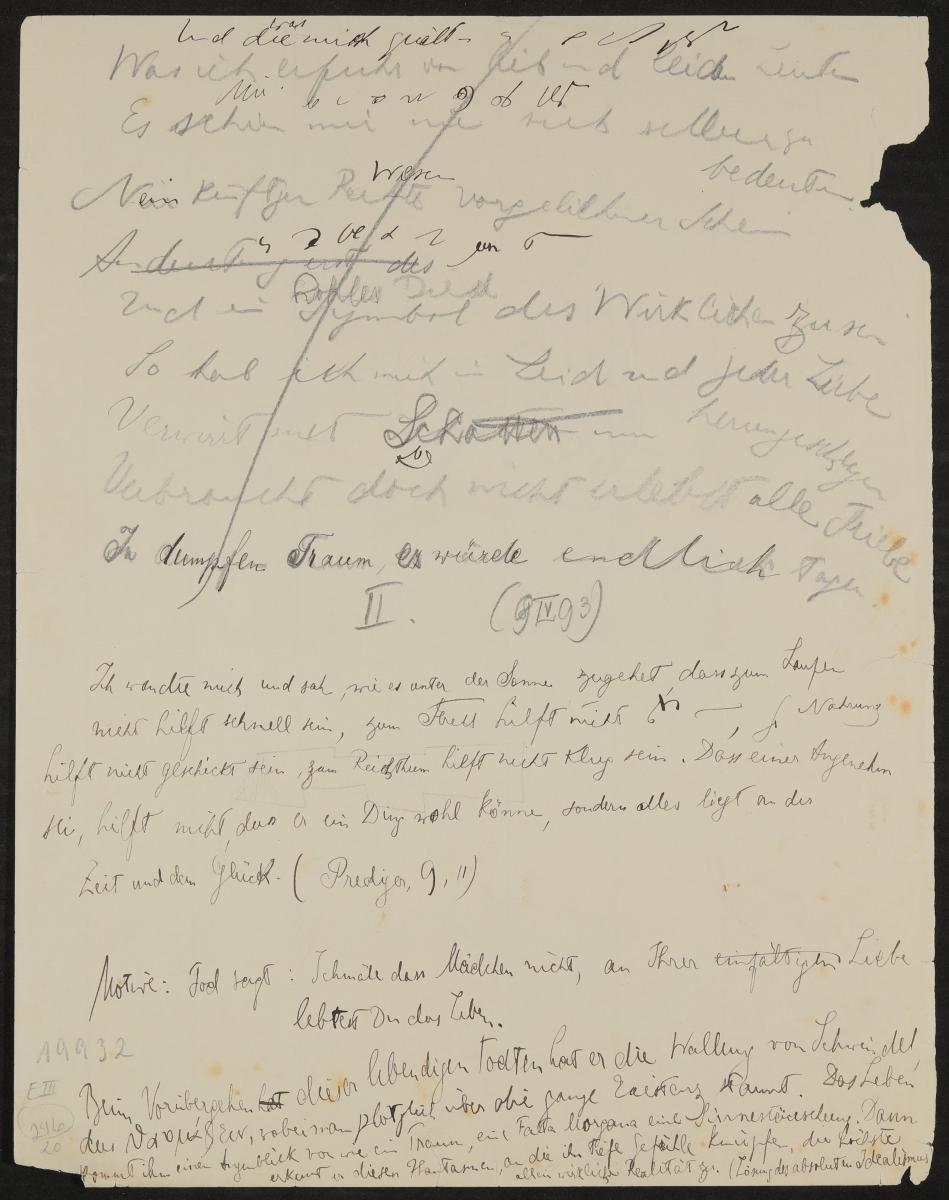 Und die mich quält
was
Was ich erfuhr von Lieb und Leid den Leuten
Es schien mir nie sich selber zu
bedeuten.
Wesen
Nein künftgen vorgeliehner Schein
Andeutung erst des
hohles
Und ein Symbol des Wirklichen zu sein
So hab ich mich in Leid und jeder Liebe
Verwirrt mit Schatten nur herumgeschlagen
Verbraucht doch nicht erlebt alle Triebe
In dumpfen Traum, es würde endlich Tagen.
II. (8 IV 93)
Ich wandte mich und sah, wie es unter der Sonne zugehet dass zum Laufen
nicht hilft schnell sein, zum Streit hilft nicht Nahrung
hilft nicht geschickt sein, zum Reichthum hilft nicht Klug sein. Dass einer Angenehm
sei, hilft nicht, dass er ein Ding wohl könne, sondern alles liegt an der
Zeit und dem Glück. (Prediger, 9, 11)
Motive: Tod sagt: Schmäle dass Mädchen nicht, an Ihrer einfältigen Liebe
lebtest Du das Leben.
Beim Vorübergehen hat dieser lebendigen Todten hat er die Wallung von Schwindel,
des θαυμάζειν, wobei man plötzlich über die ganze Existenz staunt. Das Leben
kommt ihm einen Augenblick vor wie ein Traum, eine Fata Morgana eine Sinnestäuschung. Dann
erkennt er diesen Phantasmen, an die ihn tiefe Gefühle knüpfen, die höchste
allein wirkliche Realität zu. (Lösung des absoluten Idealismus
19932
E III
246
20